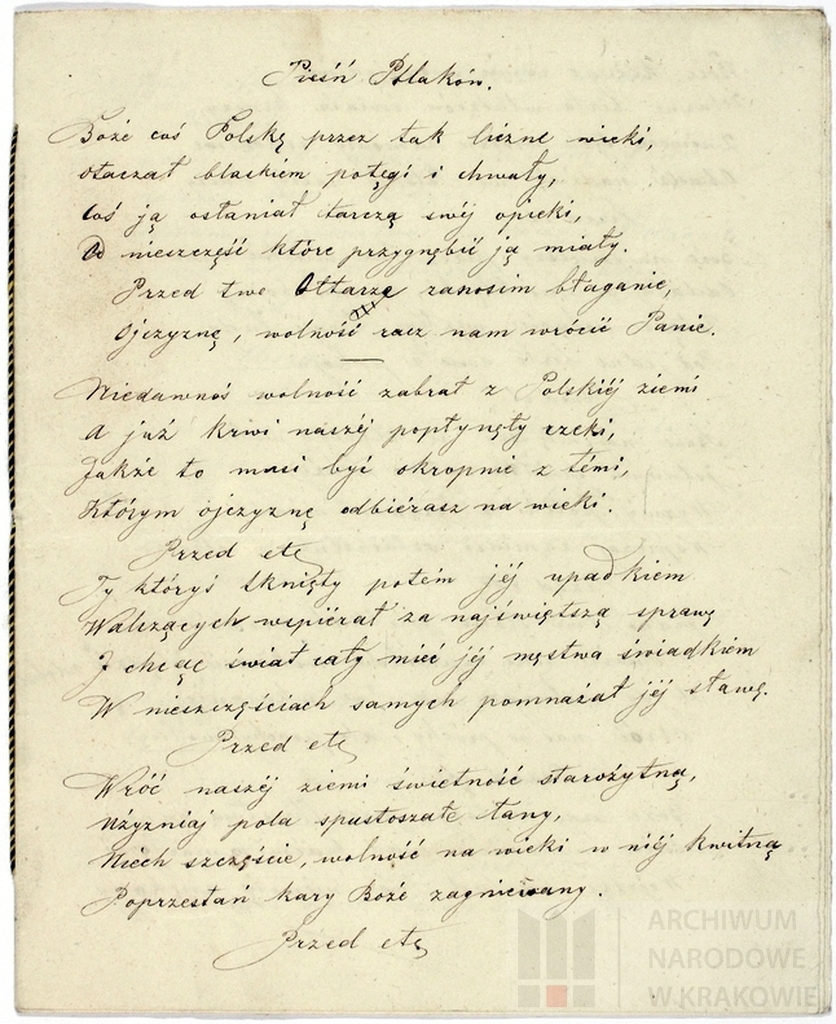 Pieśń Polaków.
Boże coś Polskę przez tak liczne wieki,
otaczał blaskiem potęgi i chwały,
Coś ją osłaniał tarczą swéj opieki,
Od nieszczęść które przygnębić ją miały.
Przed twe Ołtarze zanosim błaganie,
Ojczyznę, wolność racz nam wrócić Panie.
Niedawnoś wolność zabrał z Polskiéj ziemi
A już krwi naszéj popłynęły rzeki,
Jakże to musi być okropnie z témi,
Którym ojczyznę odbiérasz na wieki.
Przed etc
Ty któryś tknięty potém jéj upadkiem
Walczących wspiérał za najświętszą sprawę
I chcąc świat cały mieć jéj męstwa świadkiem
W nieszczęściach samych pomnażał jéj sławę.
Przed etc
Wróć naszéj ziemi świetność starożytną,
Użyzniaj pola spustoszałe łany,
Niech szczęście, wolność na wieki w niéj kwitną
Poprzestań kary Boże zagniewany.
Przed etc
ARCHIWUM
NARODOWE
W KRAKOWIE